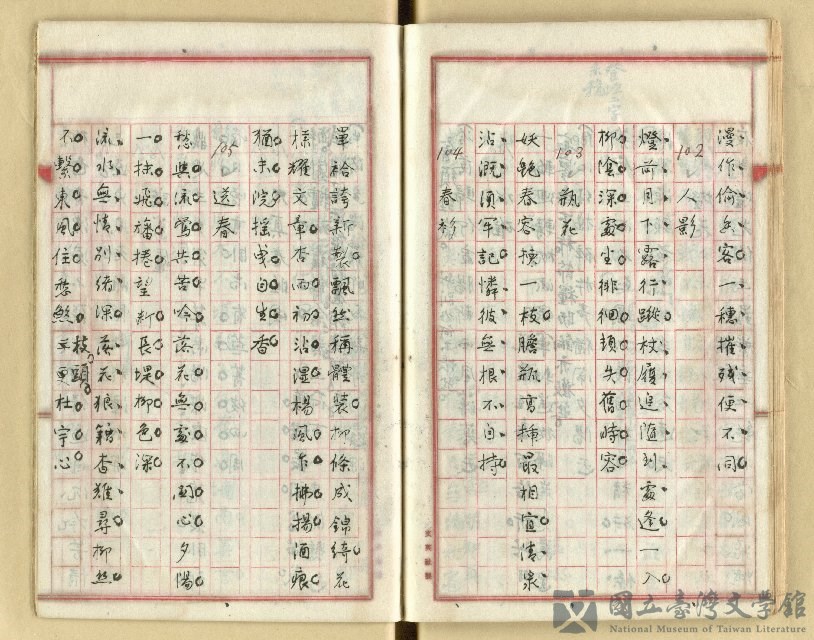 漫作偷兵客一穗摧殘便不同
102 人影
燈前月下露行蹤杖履追隨到處逢一入
柳陰深處坐徘徊頓失舊時容
103 瓶花
妖艷春容揀一枝膽瓶高插最相宜清泉
沾溉須牢記憐彼無根不自持
104 春衫
單袷誇新製飄然稱體裝柳條成錦綺花
樣耀文章杏雨初沾濕楊風乍拂揚酒痕
猶未浣搖曳自生香
105 送春
愁與流鶯共苦吟落花無處不關心夕陽
一抹飛旛捲望斷長堤柳色深
流水無情別緒深落花狼籍杳難尋柳絲
不繫東風住愁煞枝頭杜宇心
國立臺灣文學館
National Museum of Taiwan Literature